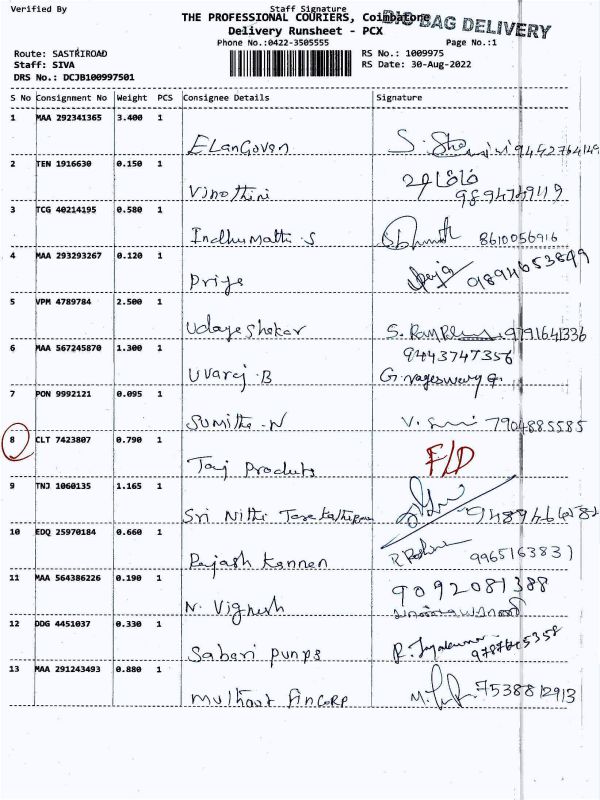 Verified By Staff Signature
THE PROFESSIONAL COURIERS, Coimbatore
BIG BAG DELIVERY
Delivery Runsheet - PCX
Phone No.:0422-3505555 Page No.:1
Route: SASTRIROAD RS No.: 1009975
Staff: SIVA RS Date: 30-Aug-2022
DRS No.: DCJB100997501
S No Consignment No Weight PCS Consignee Details Signature
1 MAA 292341365 3.400 1
ELanGovan S.
2 TEN 1916630 0.150 1
Vinothini
3 TCG 40214195 0.580 1
Indhumathi.S 8610056916
4 MAA 293293267 0.120 1
Priya 9894653849
5 VPM 4789784 2.500 1
Udayashekar S. 9791641336
6 MAA 567245870 1.300 1 9443747356
Uvaraj.B G.nageswary G.
7 PON 9992121 0.095 1
Sumitha.N V. 7904885585
8 CLT 7423807 0.790 1
Taj Products F/D
9 TNJ 1060135 1.165 1
Sri Nithi
10 EDQ 25970184 0.660 1
Rajash Kannan 9965163831
11 MAA 564386226 0.190 1 9092081388
N. Vignesh
12 DDG 4451037 0.330 1
Sabari Pumps
13 MAA 291243493 0.880 1
Muthoot FinCorp M. 7538812913